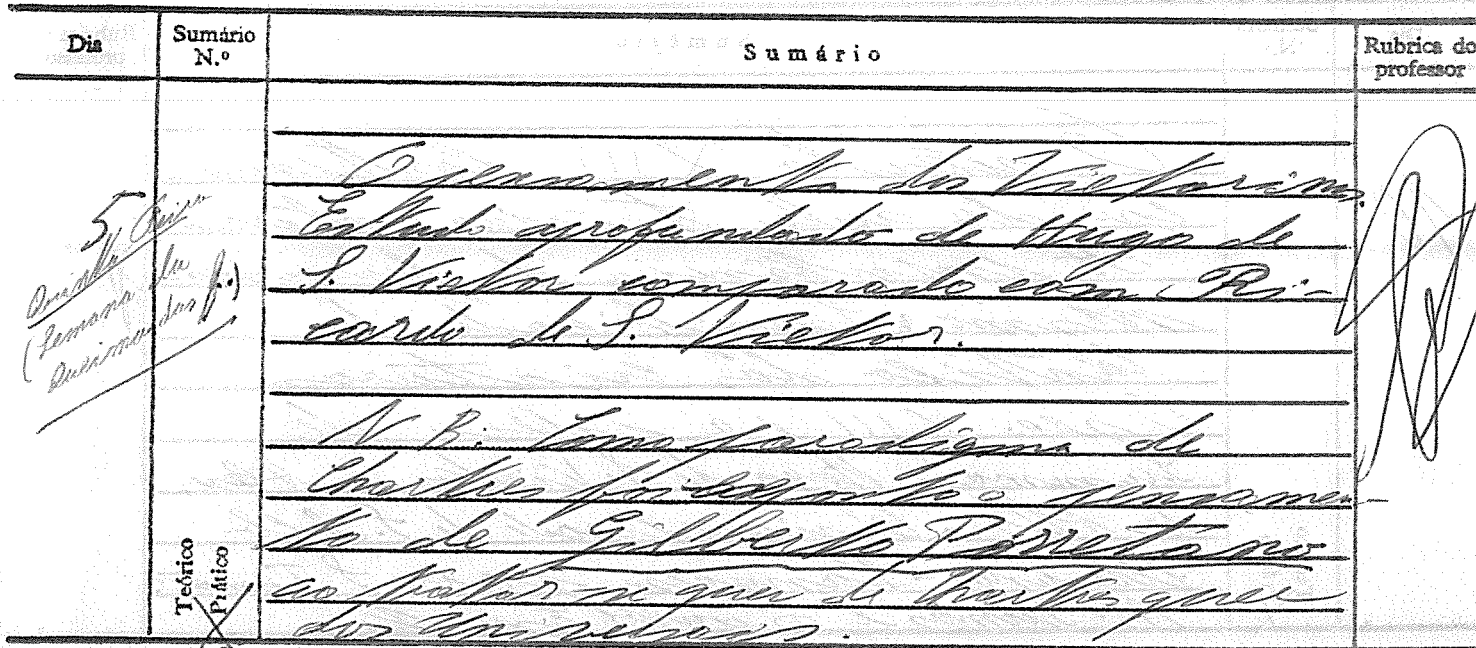 Dia
Sumário N.º
Sumário
Rubrica do professor
5
(Semana da
Queima das f.)
O pensamento dos Victorinos.
Estudo aprofundado de Hugo de
S. Victor comparado com Ri-
cardo de S. Victor.
N. B. Como paradigma de
Chartres foi exposto o pensamen-
to de Gilberto Porretano
ao tratar-se quer de Chartres quer
dos Universais.
Teórico
Prático